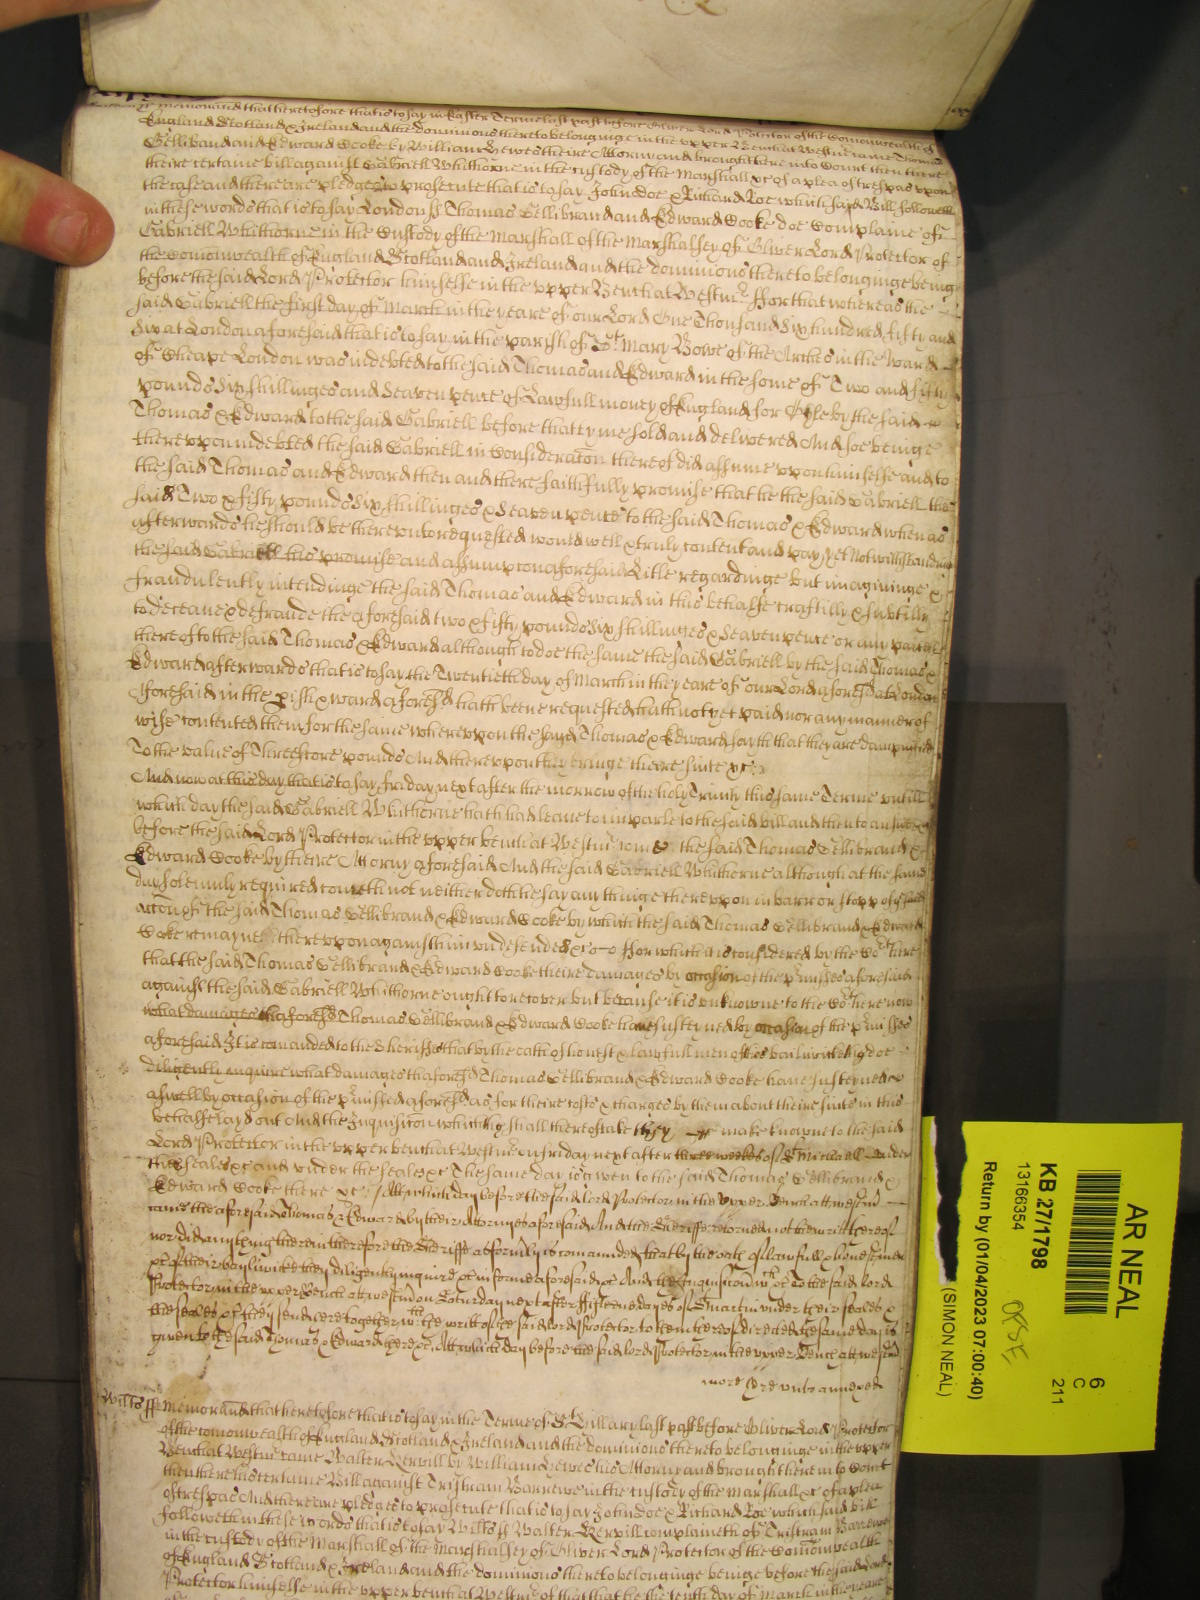 Memorand that heretofore that is to say in Easter Terme last past before Oliver Lord Protector of the Comonwealth of
England Scotland & Ireland and the dominions thereto belonginge in the upper Bench at Westmr came Thomas
Gellibrand and Edward Cooke by William Lewes theire Attorny and brought here into Court then there
theire certaine bill against Gabriell Whithorne in the custody of the Marshall &c of a plea of trespas uppon
the case and there are pledges to prosecute that is to say John doe & Richard Roe which said Bill followeth
in these words that is to say London ss Thomas Gellibrand and Edward Cooke doe Complaine of
Gabriell Whithorne in the Custody of the Marshall of the Marshalsey of Oliver Lord Protector of
the Comonwealth of England Scotland and Ireland and the dominions thereto belonginge beinge
before the said Lord Protector himselfe in the upper Bench at Westmr ffor that whereas the
said Gabriell the first day of March in the yeare of our Lord One Thousand Six hundred fifty and
Six at London aforesaid that is to say in the parish of St Mary Bowe of the Arches in the Ward
of Cheape London was indebted to the said Thomas and Edward in the some of Two and fifty
pounds Six shillinges and Seaven pence of Lawfull money of England for Oyle by the said
Thomas & Edward to the said Gabriell before that tyme sold and delivered And soe beinge
thereuppon indebted the said Gabriell in Consideracon thereof did assume uppon himselfe and to
the said Thomas and Edward then and there faithfully promise that he the said Gabriell the
said Two & fifty pounds Six shillinges & Seaven pence to the said Thomas & Edward when as
afterwards he should be thereunto requested would well & truly content and pay yet Notwithstandinge
the said Gabriell his promise and assumpcon aforesaid Litle regardinge but imagininge &
fraudulently intendinge the said Thomas and Edward in this behalfe craftilly & subtilly
to deceave & defraude the aforesaid two & fifty pounds Six shillinges & Seaven pence or any parcell
thereof to the said Thomas & Edward although to doe the same the said Gabriell by the said Thomas &
Edward afterwards that is to say the Twentieth day of March in the yeare of our Lord aforesd at London
aforesaid in the pish & ward aforesd hath beene requested hath not yet paid nor any manner of
wise contented them for the same whereuppon the said Thomas & Edward say that they are dampnified
To the value of Threescore pounds And thereuppon they bringe theire suite &c
And now at this day that is to say friday next after the morrow of the holy Trinity this same Terme untill
which day the said Gabriell Whithorne hath had leave to imparle to the said bill and then to answer
before the said Lord Protector in the upper bench at Westmr come the said Thomas Gellibrand &
Edward Cooke by theire Attorny aforesaid And the said Gabriell Whithorne although at the same
day solemnly required cometh not neither doth he say any thinge thereuppon in barr or stopp of the said
accon of the said Thomas Gellibrand & Edward Cooke by which the said Thomas Gellibrand & Edward
Cooke remayne thereuppon against him undefended &c ffor which it is considered by the Cort here
that the said Thomas Gellibrand & Edward Cooke theire damages by occasion of the pmisses aforesaid
against the said Gabriell Whithorne ought to recover but because it is unknowne to the Cort here now
what damages the aforesd Thomas Gellibrand & Edward Cooke have susteyned by occasion of the pmisses
aforesaid It is comanded to the Sheriffes that by the oath of honest & lawfull men of theis bailiwicke they doe
diligently inquire what damages the aforesd Thomas Gellibrand & Edward Cooke have susteyned
aswell by occasion of the pmisses aforesd as for theire costs & charges by them about theire suite in this
behalfe layd out And the Inquisicon which they shall thereof take they make knowne to the said
Lord Protector in the upper bench at Westmr on friday next after three weekes of St Michaell under
the seales &c and under the seales &c The same day is given to the said Thomas Gellibrand &
Edward Cooke there &c Att which day before the said lord Protector in the upper Bench att westm
came the aforesaid Thomas & Edward by their Attorney aforesaid And the Sheriffe retorned not the writt thereof
nor did any thing therein therefore the Sheriffe as formerly is comanded that by the oath of lawfull & honest men
&c of their bayliwicke they diligently inquire &c in forme aforesaid &c And the Inquisicon wch &c To the said lord
Protector in the upper Bench at westm on Saturday next after fifteene dayes of St Martin under their seales &
the seales &c they send here together wth the writt of the said lord Protector to them thereof directed the same day is
given to the said Thomas & Edward there &c Att which day before the said lord Protector in the upper Bench att westm
more Ord unto annexed
Wilts ss Memorand that heretofore that is to say in the Terme of St Hillary last past before Oliver Lord Protector
of the comonwealth of England Scotland & Ireland and the dominions thereto belonginge in the upper
Bench at Westmr came Walter Kervill by William Lewes his Attorny and brought here into Court
then there his certaine Bill against Tristram Barnewe in the custody of the Marshall &c of a plea
of trespas And there are pledges to prosecute that is to say John doe & Richard Roe which said bill
followeth in these words that is to say Wilts ss Walter Kervill complaineth of Tristram Barnewe
in the custody of the Marshall of the Marshalsey of Oliver Lord Protector of the Comonwealth
of England Scotland & Ireland and the dominions thereto belonginge beinge before the said Lord
Protector himselfe in the upper bench at Westmr of that that he the tenth day of March in the yeare
AR NEAL
6
C
211
KB 27/1798
13166354
Return by (01/04/2023 07:00:40)
(SIMON NEAL)